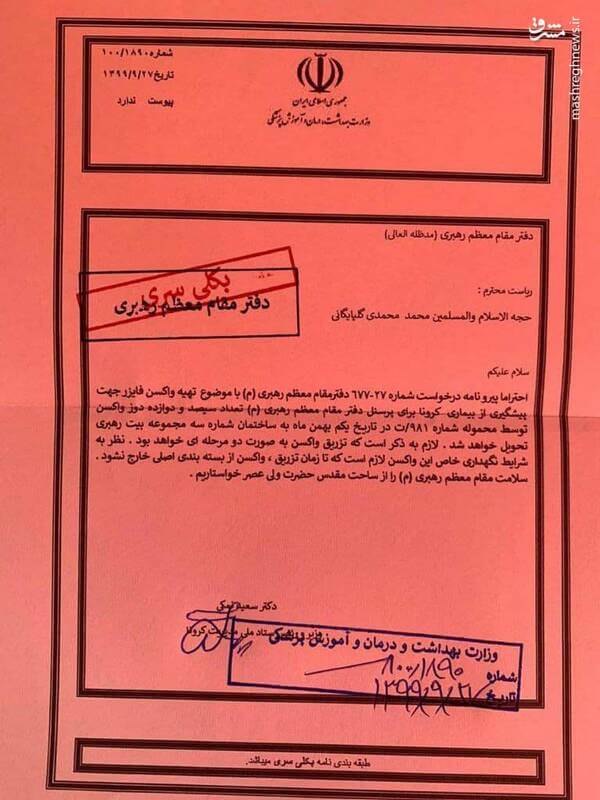 مشرق
mashreghnews.ir
شماره ۱۰۰/۱۸۹۰
تاریخ ۱۳۹۹/۹/۲۷
پیوست ندارد
جمهوری اسلامی ایران
وزارت بهداشت، درمان و آموزش پزشکی
دفتر مقام معظم رهبری (مدظله العالی)
بکلی سری
دفتر مقام معظم رهبری
ریاست محترم :
حجه الاسلام والمسلمین محمد محمدی گلپایگانی
سلام علیکم
احتراما پیرو نامه درخواست شماره ۲۷-۶۷۷ دفترمقام معظم رهبری (م) با موضوع تهیه واکسن فایزر جهت
پیشگیری از بیماری کرونا برای پرسنل دفتر مقام معظم رهبری (م) تعداد سیصد و دوازده دوز واکسن
توسط محموله شماره ۹۸۱/ت در تاریخ یکم بهمن ماه به ساختمان شماره سه مجموعه بیت رهبری
تحویل خواهد شد . لازم به ذکر است که تزریق واکسن به صورت دو مرحله ای خواهد بود . نظر به
شرایط نگهداری خاص این واکسن لازم است که تا زمان تزریق ، واکسن از بسته بندی اصلی خارج نشود .
سلامت مقام معظم رهبری (م) را از ساحت مقدس حضرت ولی عصر خواستاریم .
دکتر سعید نمکی
ستاد ملی مدیریت کرونا
وزارت بهداشت و درمان و آموزش پزشکی
شماره ۱۰۰/۱۸۹۰
تاریخ
طبقه بندی نامه بکلی سری میباشد.